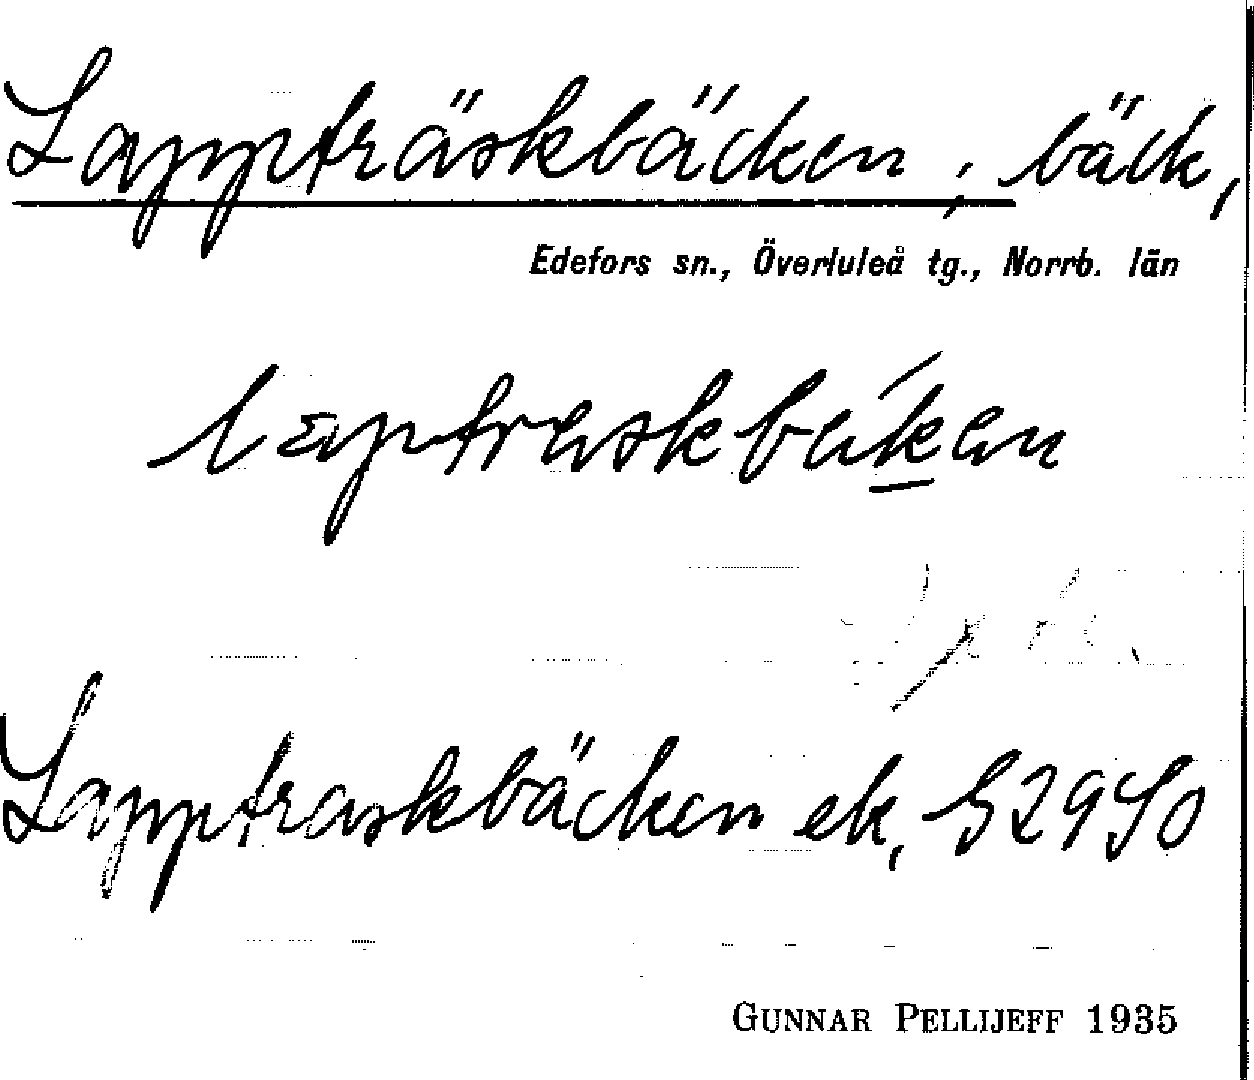 Lappträskbäcken; bäck,
Edefors sn., Överluleå tg., Norrb. län
Lappträskbäcken ek, S29SO
GUNNAR PELLIJEFF 1935